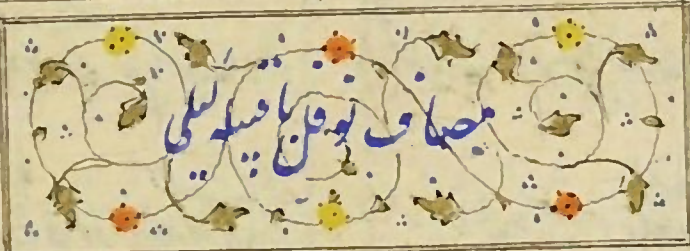 مصاف نوفل با قبیله لیلی